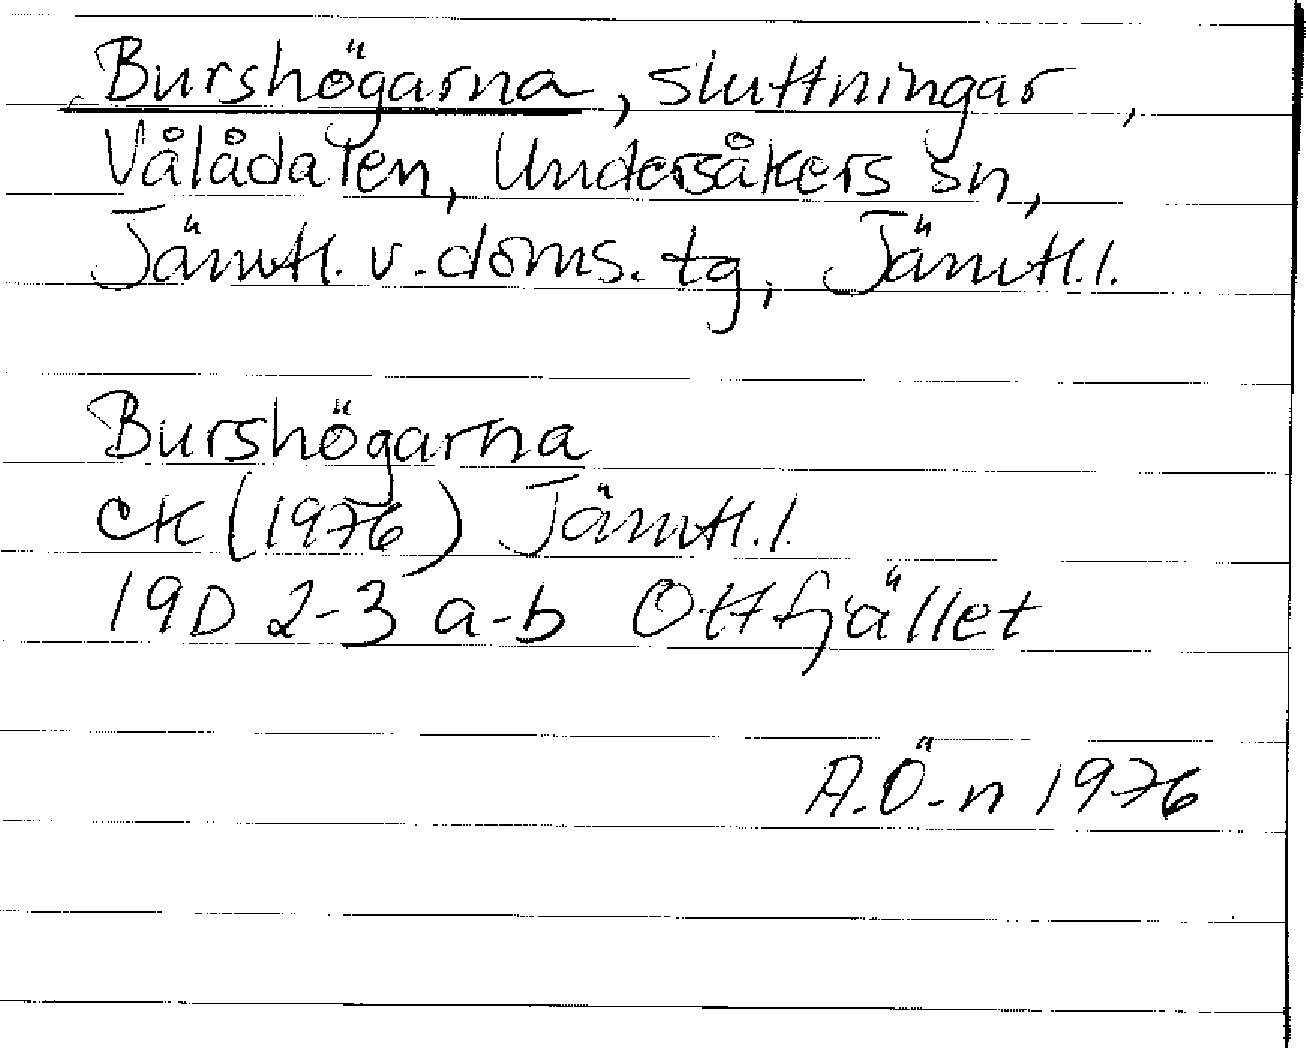 Burshögarna, sluttningar,
Vålådalen, Undersåkers sn,
Jämtl. v. doms. tg, Jämtl. l.
Burshögarna
EK (1976) Jämtl. l.
19D 2-3 a-b Ottfjället
A.Ö-n 1976